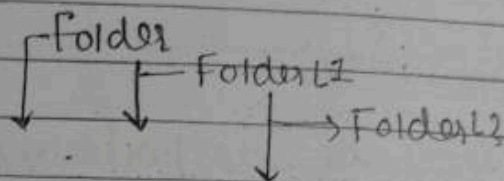 Folder
FolderL1
FolderL2